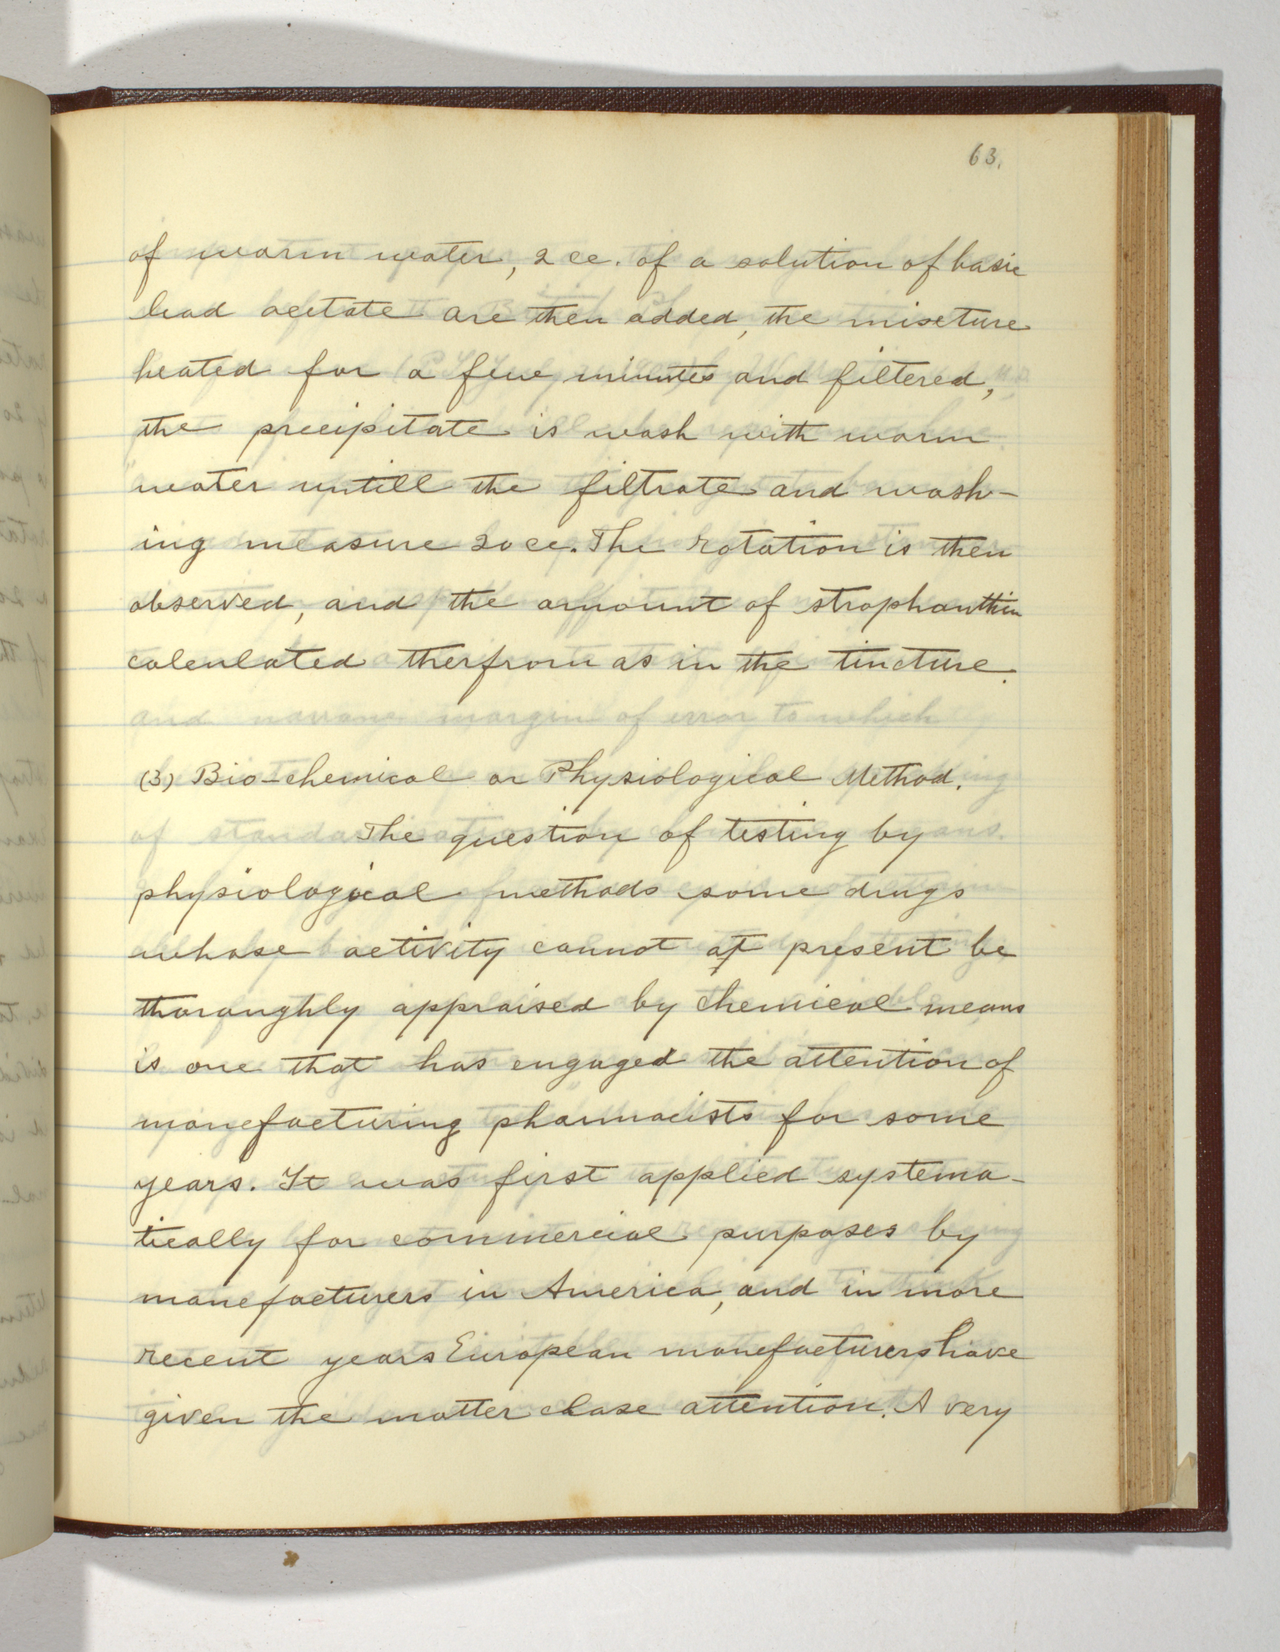 63.
of warm water, 2 cc. of a solution of basic
lead acetate are then added, the mixture
heated for a few minutes and filtered,
the precipitate is wash with warm
water untill the filtrate and wash-
ing measure 20 cc. The rotation is then
observed, and the amount of strophanthin
calculated therfrom as in the tincture.
(3) Bio-chemical or Physiological Method.
The question of testing by
physiological methods some drugs
whose activity cannot at present be
thoroughly appraised by chemical means
is one that has engaged the attention of
manefacturing pharmacists for some
years. It was first applied systema-
tically for commercial purposes by
manefacturers in America, and in more
recent years European manefacturers have
given the matter close attention. A very